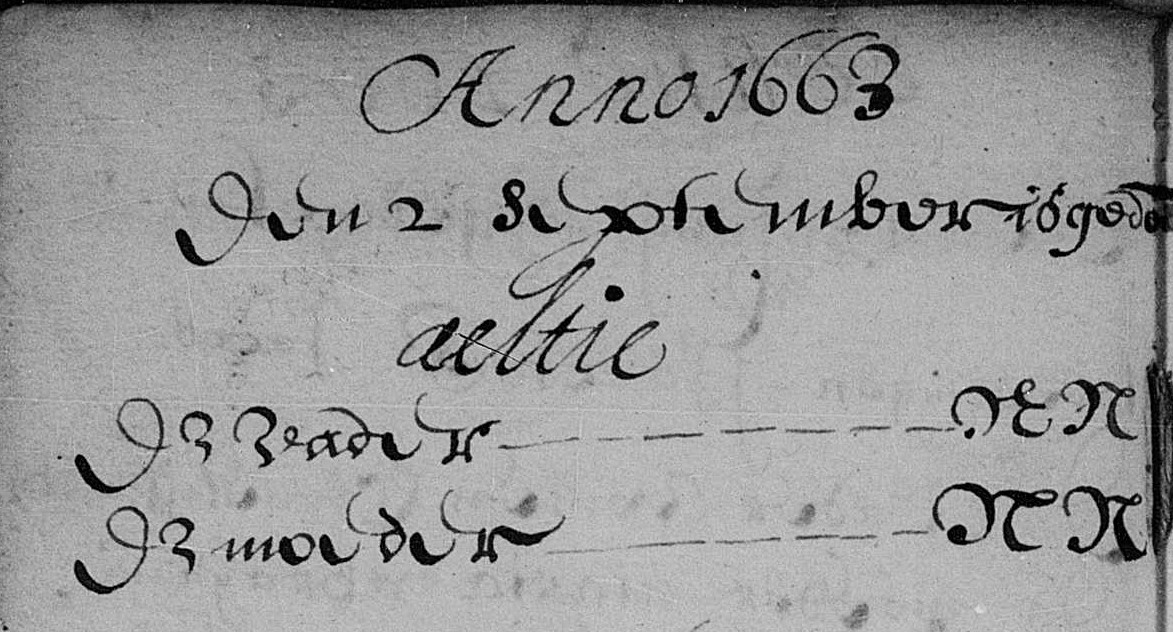 Anno 1663
Den 2 September is gedo
aeltie
De Veader NN
De moeder NN